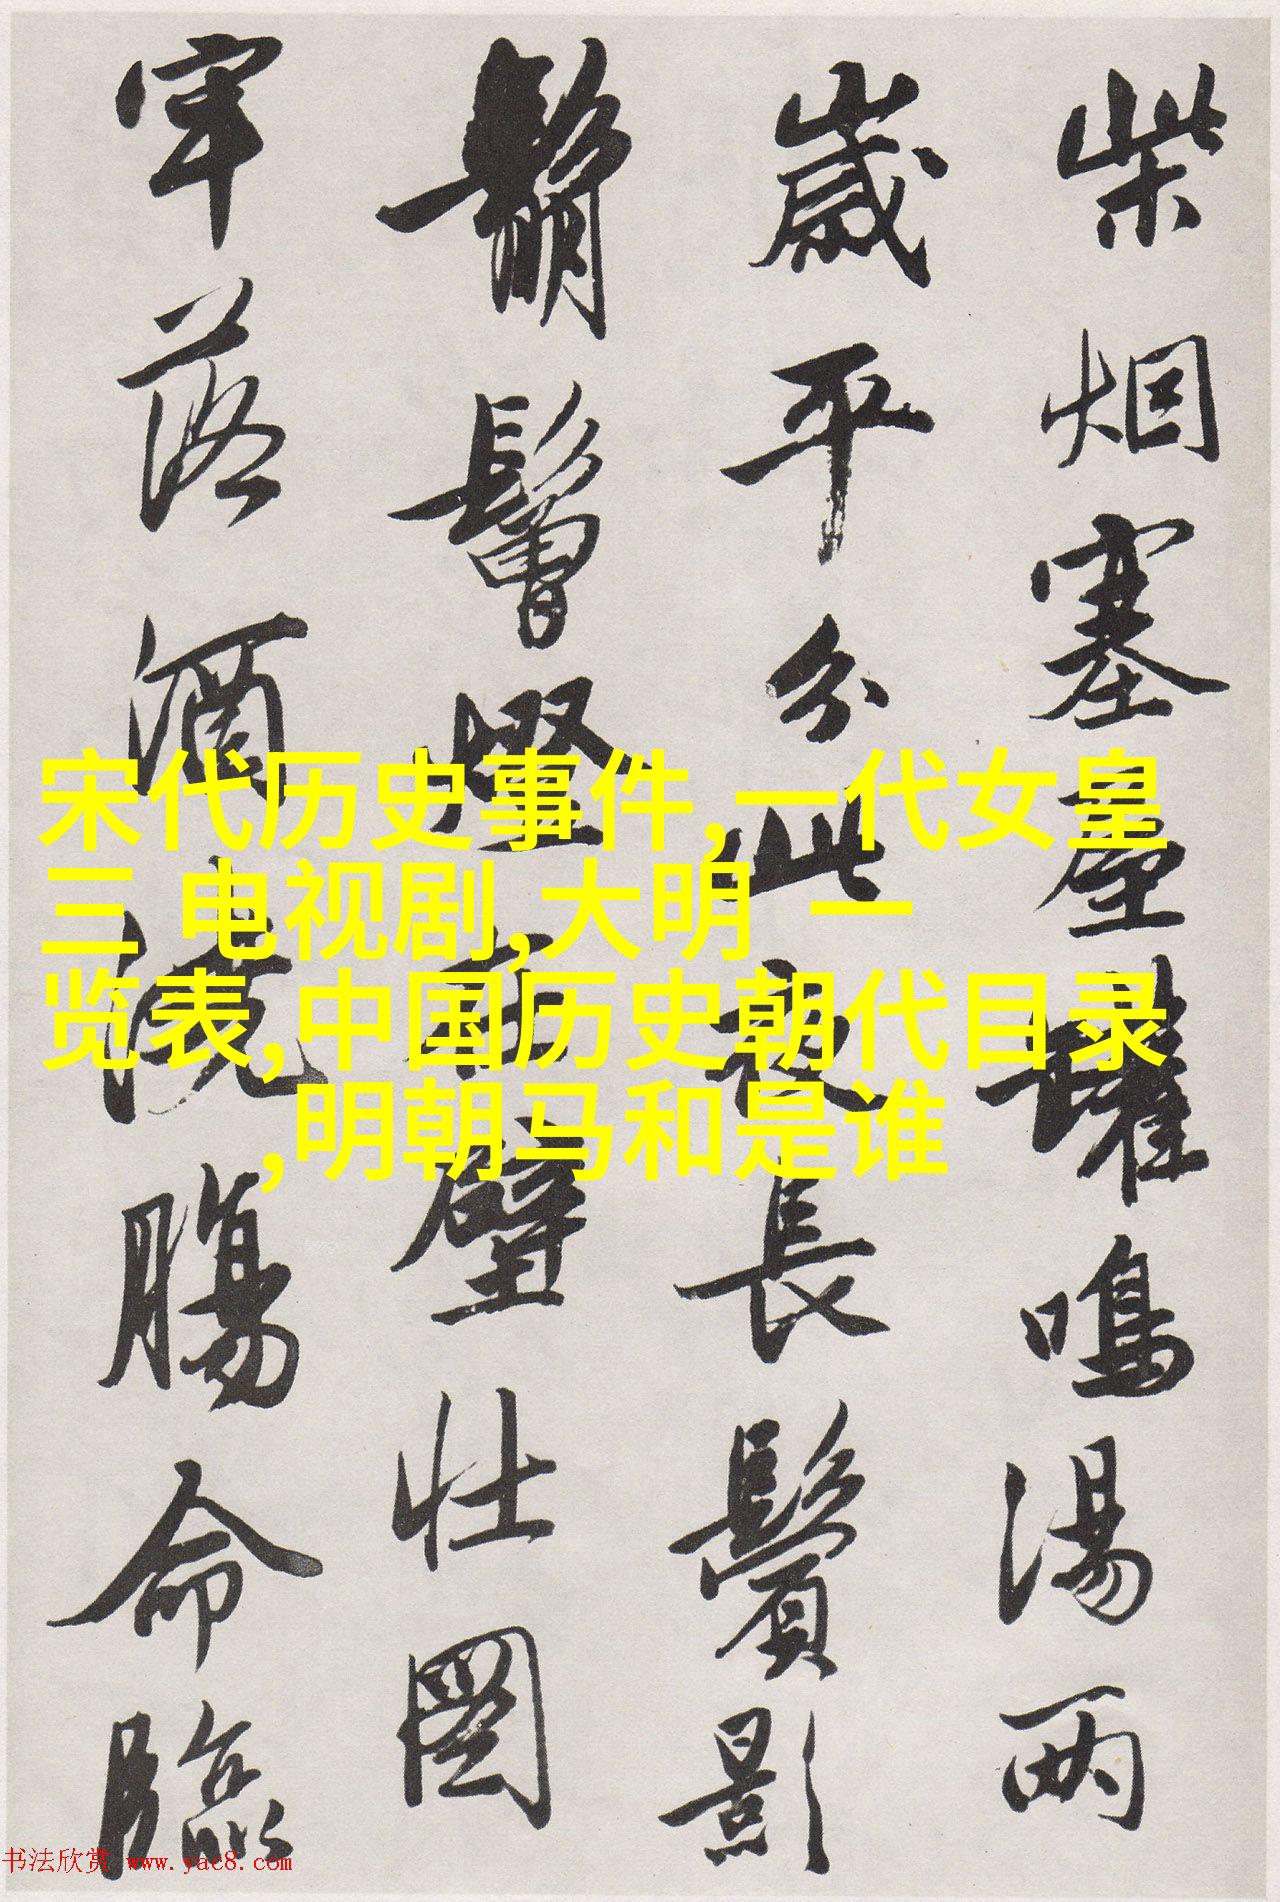 柴烟塞屋罐鳴湯兩
歲平分此夜長鬢影
鬅鬙燈在壁壯圖
牢落酒澆腸命臨
宋代历史事件,一代女皇
三 电视剧,大明 一
览表,中国历史朝代目录
,明朝马和是谁
书法欣赏 www.yac8.com